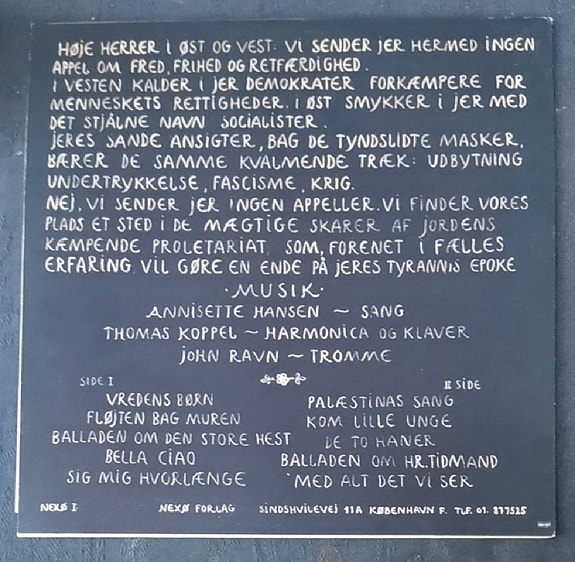 HØJE HERRER I ØST OG VEST: VI SENDER JER HERMED INGEN
APPEL OM FRED, FRIHED OG RETFÆRDIGHED.
I VESTEN KALDER I JER DEMOKRATER FORKÆMPERE FOR
MENNESKETS RETTIGHEDER. I ØST SMYKKER I JER MED
DET STJÅLNE NAVN SOCIALISTER.
JERES SANDE ANSIGTER, BAG DE TYNDSLIDTE MASKER,
BÆRER DE SAMME KVALMENDE TRÆK: UDBYTNING
UNDERTRYKKELSE, FASCISME, KRIG.
NEJ, VI SENDER JER INGEN APPELLER. VI FINDER VORES
PLADS ET STED I DE MÆGTIGE SKARER AF JORDENS
KÆMPENDE PROLETARIAT, SOM, FORENET I FÆLLES
ERFARING VIL GØRE EN ENDE PÅ JERES TYRANNIS EPOKE
·MUSIK·
ANNISETTE HANSEN ~ SANG
THOMAS KOPPEL ~ HARMONICA OG KLAVER
JOHN RAVN ~ TROMME
SIDE I
VREDENS BØRN
FLØJTEN BAG MUREN
BALLADEN OM DEN STORE HEST
BELLA CIAO
SIG MIG HVORLÆNGE
II SIDE
PALÆSTINAS SANG
KOM LILLE UNGE
DE TO HANER
BALLADEN OM HR. TIDMAND
MED ALT DET VI SER
NEXØ I NEXØ FORLAG SINDSHVILEVEJ 11A KØBENHAVN F. TLF. 01. 877525